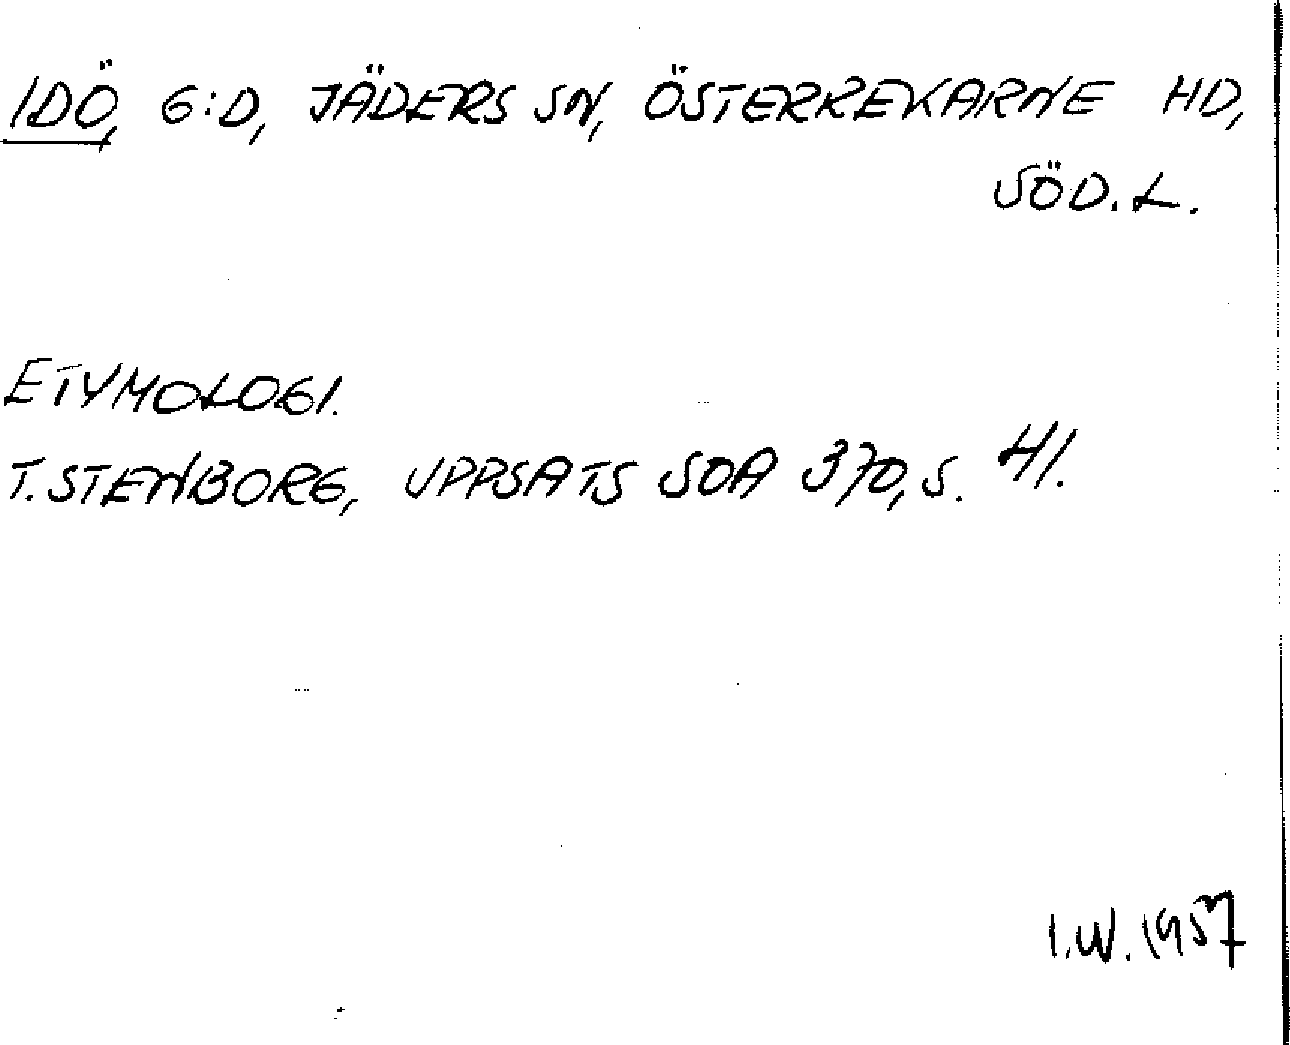 IDÖ, G:D, JÄDERS SN, ÖSTERREKARNE HD,
SÖD.L.
ETYMOLOGI.
T. STENBORG, UPPSATS SOA 370, S. 41.
I.W. 1957